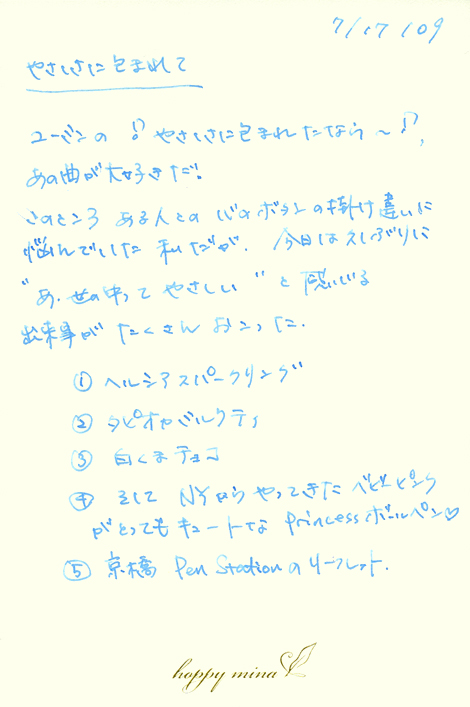 7/17/09
やさしさに包まれて
ユーミンの♪やさしさに包まれたなら〜♪,
あの曲が大好きだ!
このところ ある人との 心のボタンの掛け違いに
悩んでいた 私だが、今日は久しぶりに
"あ・世の中って やさしい" と感じる
出来事が たくさん おこった.
① ヘルシアスパークリング
② タピオカミルクティ
③ 白くまチョコ
④ そして NYからやってきた ベビーピンク
がとってもキュートな Princessボールペン♡
⑤ 京橋 Pen Stationのリーフレット.
happy mina